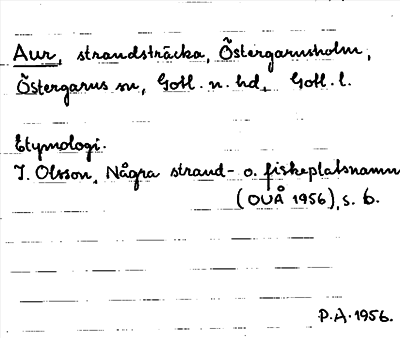 Aur, strandsträcka, Östergarnsholm,
Östergarns sn, Gotl. n. hd., Gotl. l.
Etymologi.
I. Olsson, Några strand- o. fiskeplatsnamn
(OUÅ 1956), s. 6.
P.A. 1956.